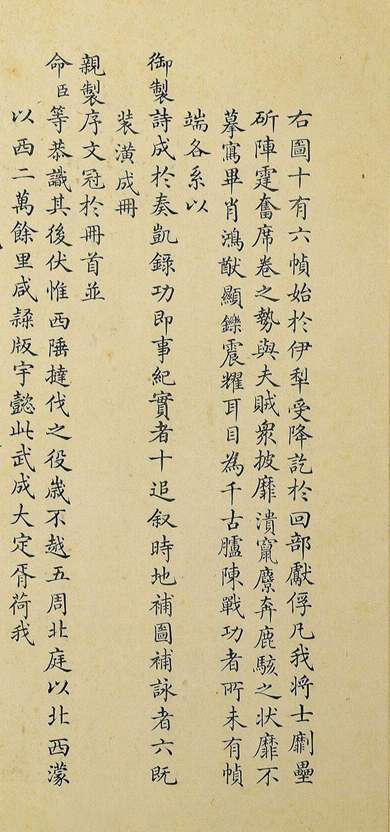 右圖十有六幀始於伊犁受降訖於回部獻俘凡我將士劘壘
斫陣霆奮席卷之勢與夫賊衆披靡潰竄麏奔鹿駭之狀靡不
摹寫畢肖鴻猷顯鑠震耀耳目為千古臚陳戰功者所未有幀
端各系以
御製詩成於奏凱錄功即事紀實者十追叙時地補圖補詠者六既
裝潢成冊
親製序文冠於冊首並
命臣等恭識其後伏惟西陲撻伐之役歲不越五周北庭以北西濛
以西二萬餘里咸隸版宇懿此武成大定胥荷我